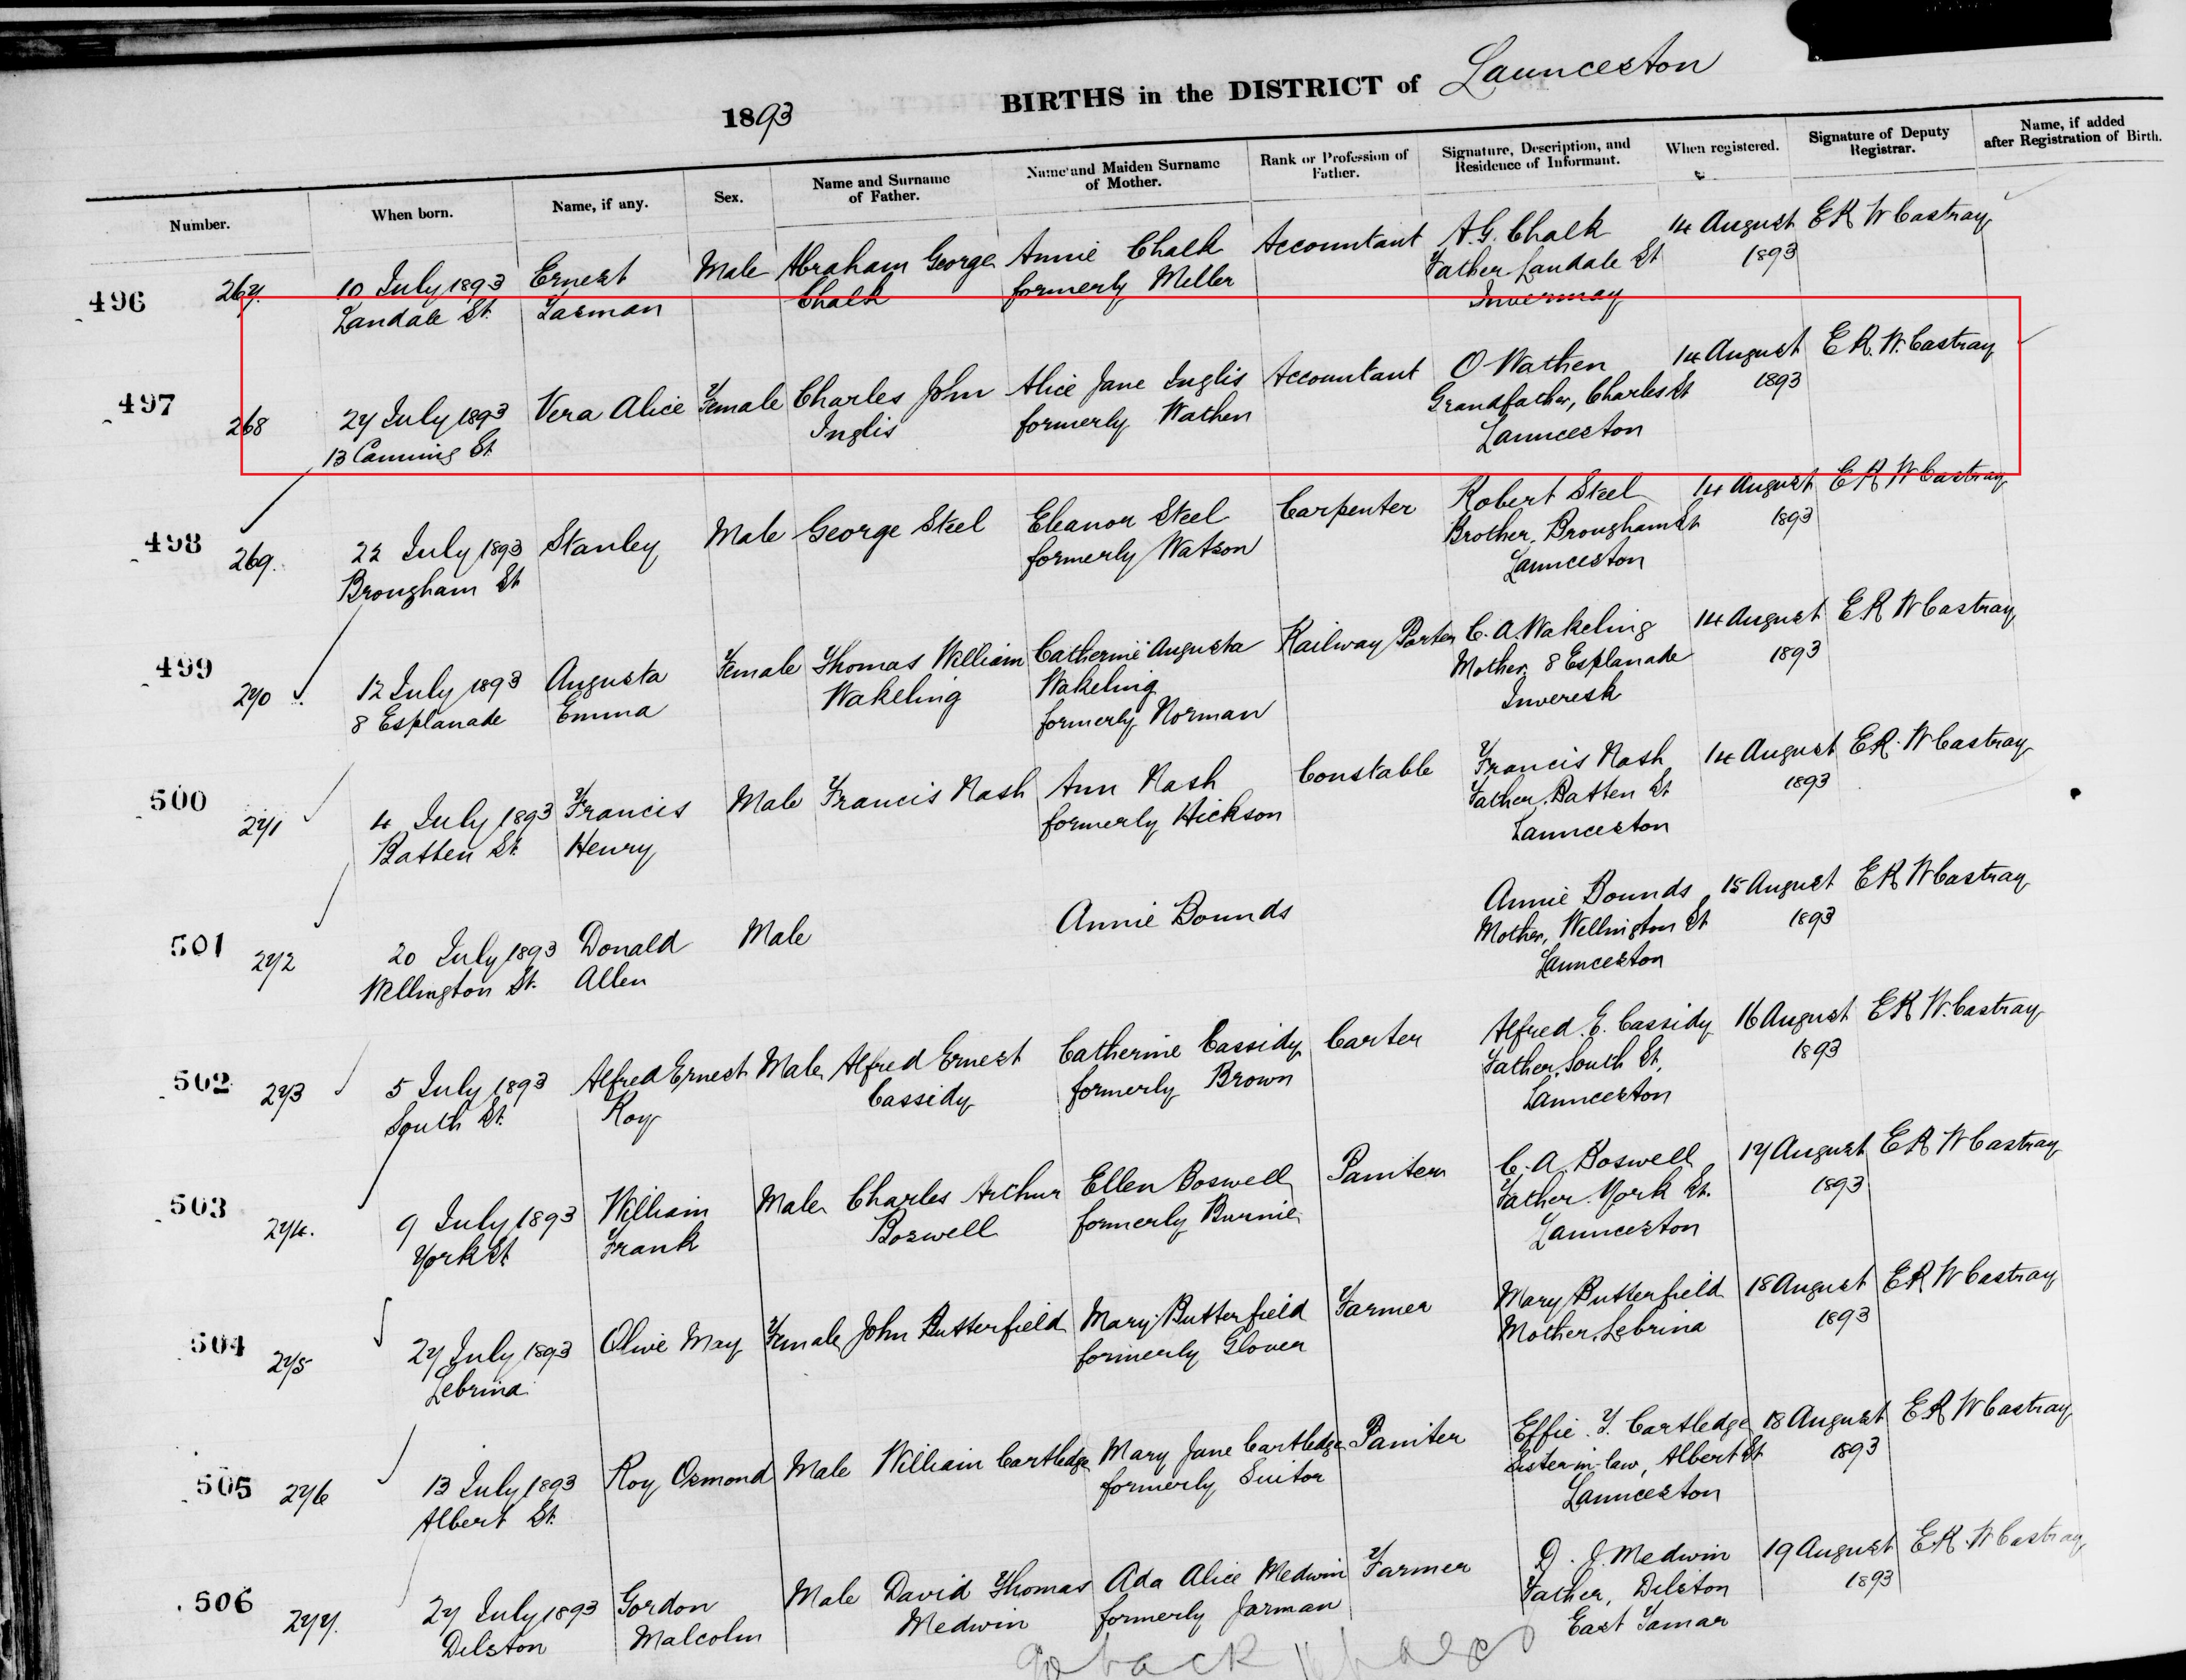 1893 BIRTHS in the DISTRICT of Launceston
Number. When born. Name, if any. Sex. Name and Surname of Father. Name and Maiden Surname of Mother. Rank or Profession of Father. Signature, Description, and Residence of Informant. When registered. Signature of Deputy Registrar. Name, if added after Registration of Birth.
496 267. 10 July 1893 Ernest Male Abraham George Annie Chalk Accountant A.G. Chalk 14 August E R W Castray
Landale St. Tasman Chalk formerly Meller Father Landale St 1893
Invermay
497 268 27 July 1893 Vera Alice Female Charles John Alice Jane Inglis Accountant O Wathen 14 August E R. W. Castray
13 Canning St. Inglis formerly Wathen Grandfather, Charles St 1893
Launceston
498 269. 22 July 1893 Stanley Male George Steel Eleanor Steel Carpenter Robert Steel 14 August E R W Castray
Brougham St. formerly Watson Brother, Brougham St 1893
Launceston
499 270 12 July 1893 Augusta Female Thomas William Catherine Augusta Railway Porter C. A. Wakeling 14 August E R W Castray
8 Esplanade Emma Wakeling Wakeling Mother, 8 Esplanade 1893
formerly Norman Inveresk
500 271 4 July 1893 Francis Male Francis Nash Ann Nash Constable Francis Nash 14 August E R. W Castray
Batten St. Henry formerly Hickson Father, Batten St 1893
Launceston
501 272 20 July 1893 Donald Male Annie Bounds Annie Bounds 15 August E R W Castray
Wellington St. Allen Mother, Wellington St 1893
Launceston
502 273 5 July 1893 Alfred Ernest Male Alfred Ernest Catherine Cassidy Carter Alfred. E. Cassidy 16 August E R W. Castray
South St. Roy Cassidy formerly Brown Father, South St, 1893
Launceston
503 274. 9 July 1893 William Male Charles Arthur Ellen Boswell Painter C. A. Boswell 17 August E R W Castray
York St Frank Boswell formerly Burnie Father York St. 1893
Launceston
504 275 27 July 1893 Olive May Female John Butterfield Mary Butterfield Farmer Mary Butterfield 18 August E R W Castray
Lebrina formerly Glover Mother, Lebrina 1893
505 276 13 July 1893 Roy Osmond Male William Cartledge Mary Jane Cartledge Painter Effie. Y. Cartledge 18 August E R W Castray
Albert St. formerly Suitor Sister-in-law, Albert St 1893
Launceston
506 277. 27 July 1893 Gordon Male David Thomas Ada Alice Medwin Farmer D. J. Medwin 19 August E R. W Castray
Dilston Malcolm Medwin formerly Jarman Father, Dilston 1893
East Tamar
go back